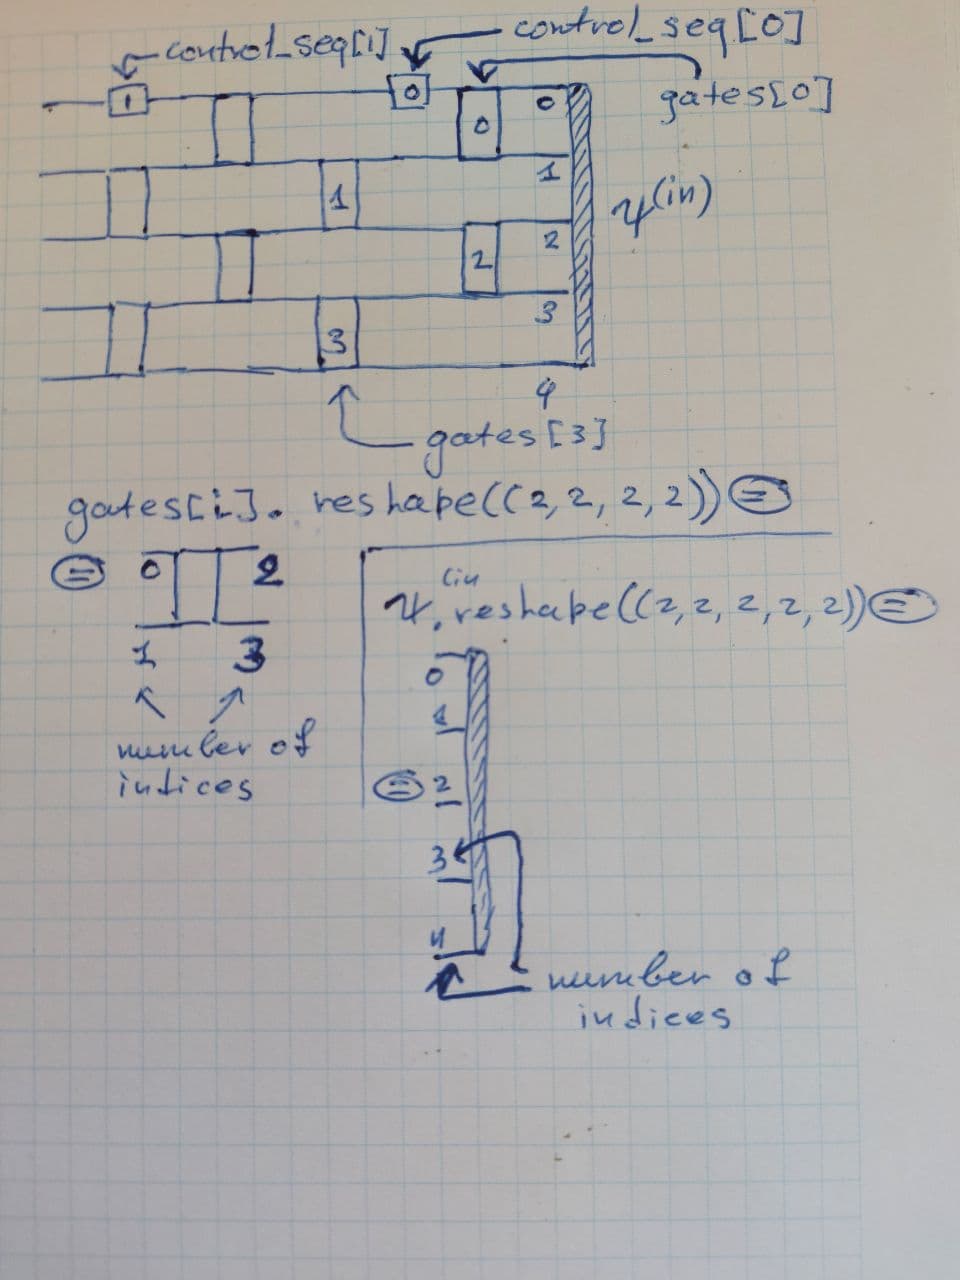 control_seq[1]
control_seq[0]
gates[0]
1
0
0
0
1
1
ψ(in)
2
2
3
3
4
gates[3]
gates[i]. reshape((2, 2, 2, 2)) =
= 0 2
1 3
number of
indices
ψ(in). reshape((2, 2, 2, 2, 2)) =
0
1
= 2
3
4
number of
indices